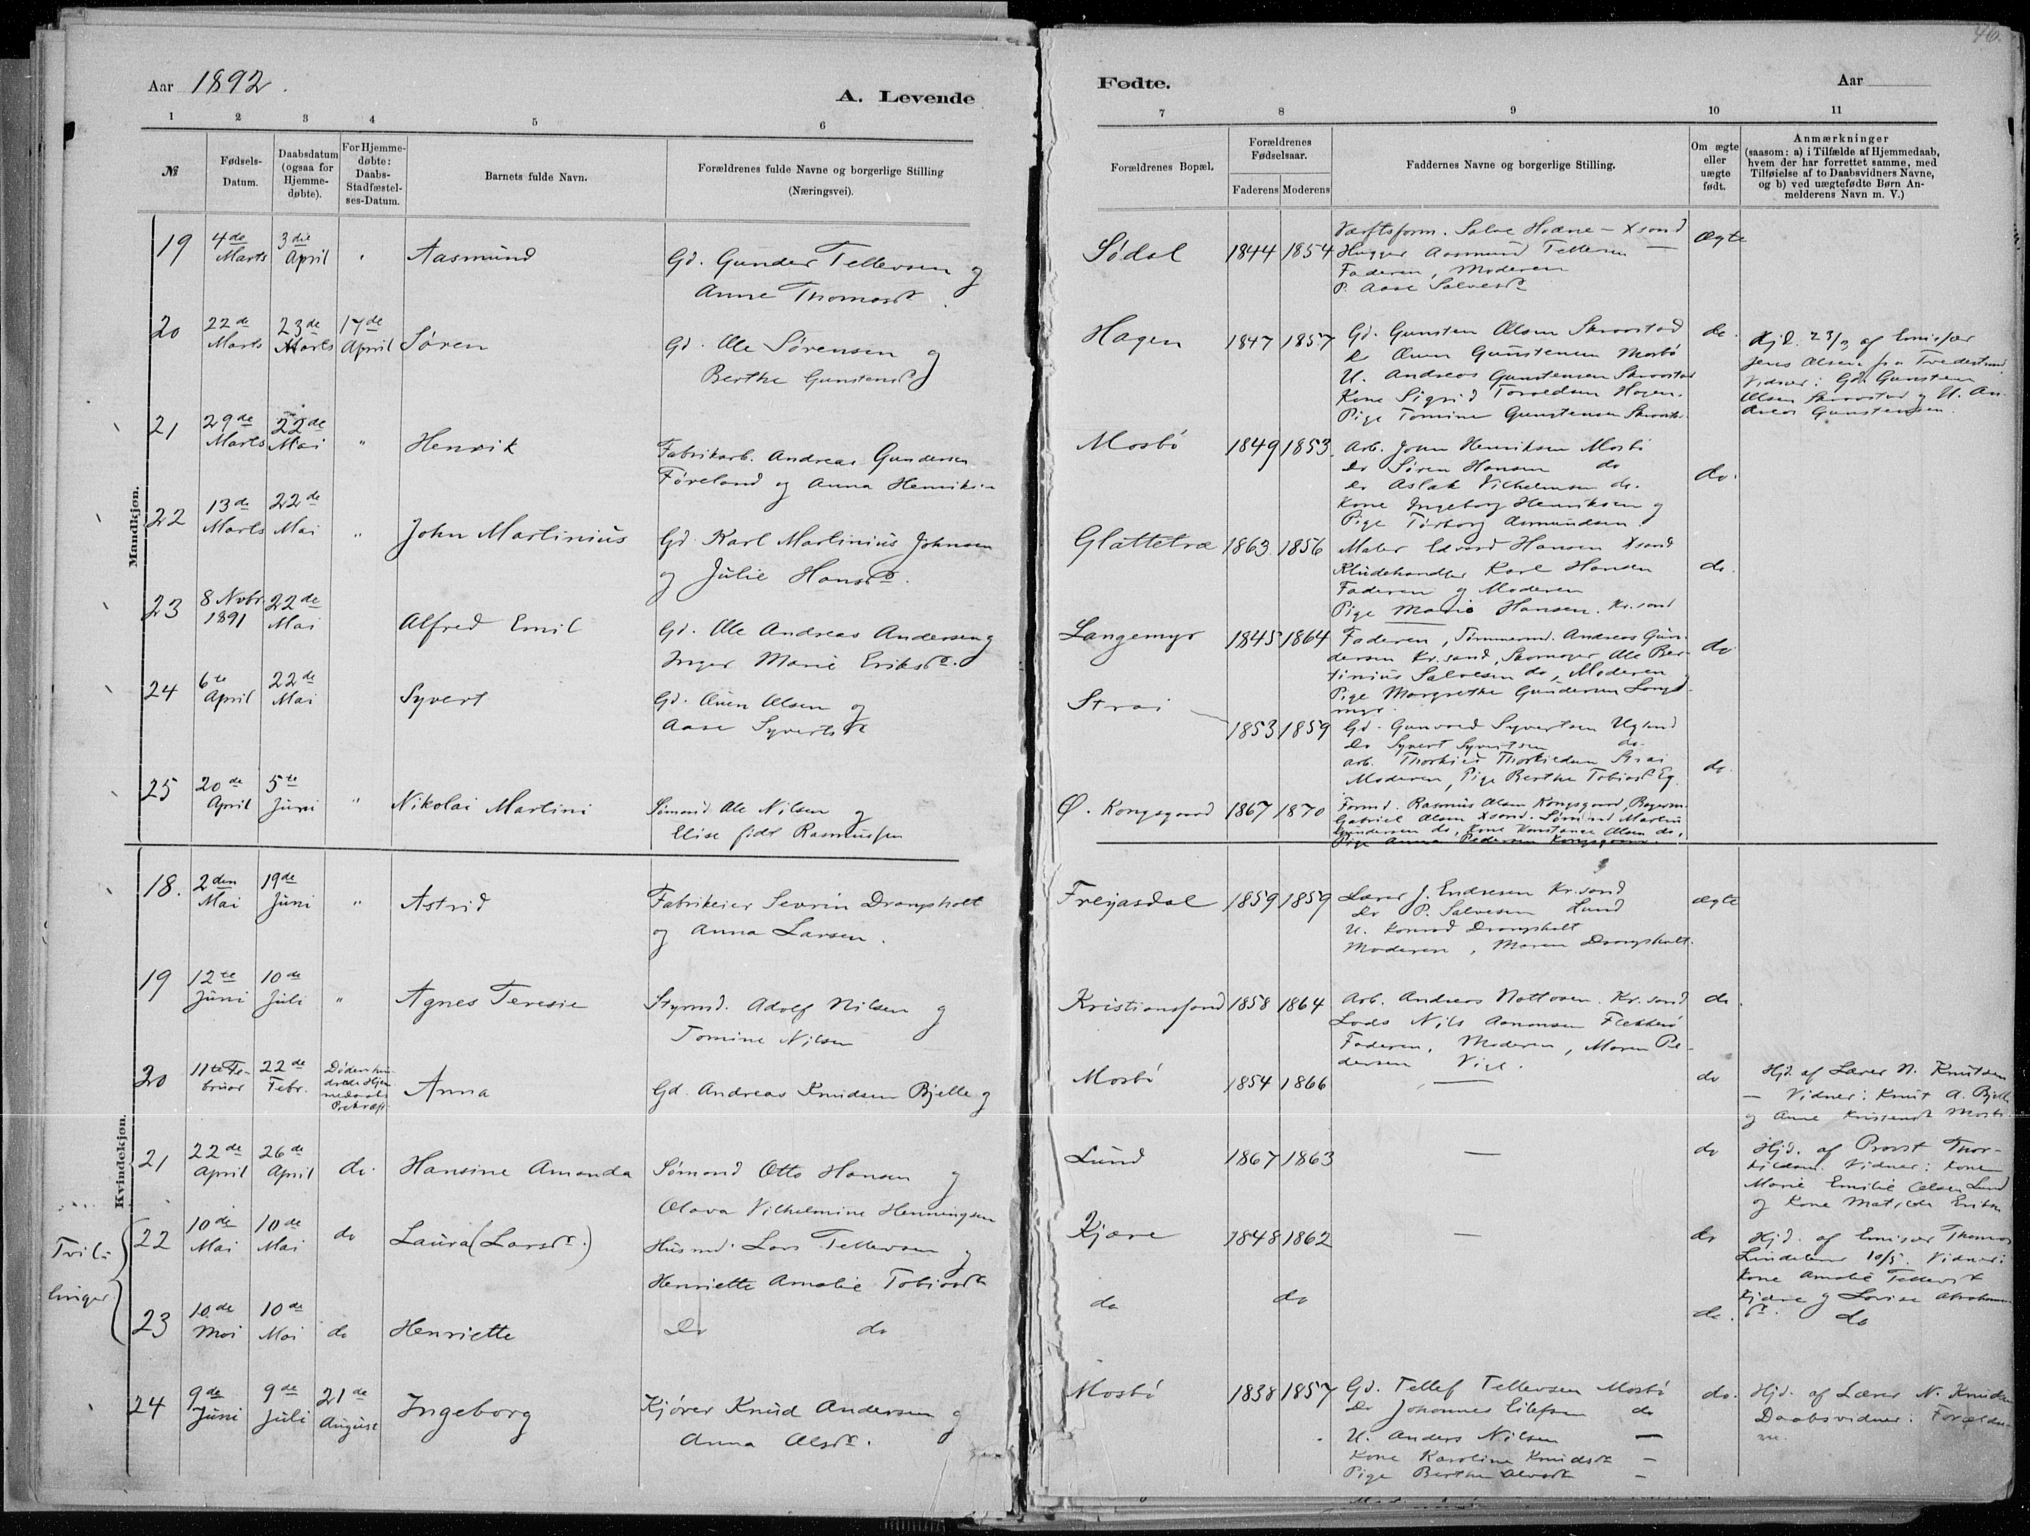 46.
Aar 1892.
A. Levende
Fødte.
Aar
1 2 3 4 5 6
7 8 9 10 11
№
Fødsels-
Datum.
Daabsdatum
(ogsaa for
Hjemme-
døbte).
For Hjemme-
døbte:
Daabs-
Stadfæstel-
ses-Datum.
Barnets fulde Navn.
Forældrenes fulde Navne og borgerlige Stilling
(Næringsvei).
Forældrenes Bopæl.
Forældrenes
Fødselsaar.
Faderens Moderens
Faddernes Navne og borgerlige Stilling.
Om ægte
eller
uægte
født.
Anmærkninger
(saasom: a) i Tilfælde af Hjemmedaab,
hvem der har forrettet samme, med
Tilføielse af to Daabsvidners Navne,
og b) ved uægtefødte Børn An-
melderens Navn m. V.)
Mandkjøn.
19
4de
Marts
3die
April
"
Aasmund
Gd. Gunder Tellevsen og
Anne Thomasd.
Sødal
1844 1854
Værftsform. Salve Hodne - Xsand
Hugger Aasmund Tellevsen —
Faderen, Moderen
P. Aase Salvesd.
Ægte
20
22de
Marts
23de
Marts
17de
April
Søren
Gd. Ole Sørensen og
Berthe Gunstensd.
Hagen
1847 1857
Gd. Gunsten Olsen Skraastad
Do Ouen Gunstensen Mosbø
U. Andreas Gunstensen Skraastad
Kone Sigrid Torvedsen Hagen.
Pige Tomine Gunstensen Skraast.
do.
Hjd. 23/3 af Emissær
Jens Olsen fra Tvedestrand
Vidner: Gd. Gunsten
Olsen Skraastad og U. An-
dreas Gunstensen.
21
29de
Marts
22de
Mai
"
Henrik
Fabrikarb. Andreas Gundersen
Føreland og Anna Henriksen
Mosbø
1849 1853
Arb. John Henriksen Mosbø
Do Søren Hansen do
Do Aslak Vilhelmsen do.
Kone Ingeborg Henriksen og
Pige Torborg Asmundsen.
do.
22
13de
Marts
22de
Mai
"
John Martinius
Gd. Karl Martinius Johnsen
og Julie Hansd.
Glattetræ
1863 1856
Maler Edvard Hansen Xsand
Kludehandler Karl Hansen
Faderen og Moderen
Pige Marie Hansen. Kr.sand
do.
23
8 Novbr.
1891
22de
Mai
Alfred Emil
Gd. Ole Andreas Andersen og
Inger Marie Eriksd.
Langemyr
1845 1864
Faderen, Tømmermd. Andreas Gun-
dersen Kr.sand, Skomager Ole Ber-
tinius Salvesen do, Moderen
Pige Margrethe Gundersen Lange-
myr.
do
24
6te
April
22de
Mai
Syvert
Gd. Ouen Olsen og
Aase Syvertsd.
Strai
1853 1859
Gd. Gunvard Syvertsen Ugland
Do Syvert Syvertsen do.
Arb. Thorkied Thorkiedsen Strai
Moderen, Pige Berthe Tobiasd. Eg
do.
25
20de
April
5te
Juni
"
Nikolai Martini
Sømand Ole Nilsen og
Elise født Rasmussen
Ø. Kongsgaard
1867 1870
Formd. Rasmus Olsen Kongsgaard, Bogerm.
Gabriel Olsen Xsand. Sømand Martin
Gundersen do, Kone Konstance Olsen do,
Pige Anna Pedersen Kongsgaard.
Kvindekjøn.
18.
2den
Mai
19de
Juni
"
Astrid
Fabrikeier Severin Drangsholt
og Anna Larsen.
Freyasdal
1859 1859
Lærer J. Endresen Kr.sand
Do P. Salvesen Lund
U. Konrad Drangsholt
Moderen, Maren Drangsholt.
ægte
19
12te
Juni
10de
Juli
"
Agnes Teresie
Styrmd. Adolf Nilsen og
Tomine Nilsen
Kristianssand
1858 1864
Arb. Andreas Nottosen. Kr.sand
Lods Nils Aanonsen Flekkerø
Faderen, Moderen, Maren Pe-
dersen Vige.
do.
20
11te Fe-
bruar
22de
Febr.
Anna
Gd. Andreas Knudsen Bjelle og
Mosbø
1854 1866
—
do
Hjd. af Lærer N. Knutsen
— Vidner: Knut A. Bjelle
og Anne Kristensd. Mosbø
21
22de
April
26de
April
do.
Hansine Amanda
Sømand Otto Hansen og
Olava Vilhelmine Henningsen
Lund
1867 1863
—
do
Hjd. af Provst Thor-
kildsen. Vidner: Kone
Marie Emilie Olsen Lund
og Kone Matilde Eriksn
Tvil-
linger
22
10de
Mai
10de
Mai
do
Laura (Larsd.)
Husmd. Lars Tellevsen og
Henriette Amalie Tobiasd.
Kjære
1848 1862
—
do
Hjd. af Emisær Thomas
Lindeland 10/5. Vidner:
Kone Amalie Tellevsd.
Kjære og Lovise Abrahams-
d.
23
10de
Mai
10de
Mai
do
Henriette
Do do
do
do
do.
do
24
9de
Juni
9de
Juli
21de
August
Ingeborg
Kjører Knud Andersen og
Anna Olsd.
Mosbø
1838 1857
Gd. Tellef Tellevsen Mosbø
Do Johannes Eilefsen do
U. Anders Nilsen —
Kone Karoline Knudsd. —
Pige Berthe Olavsd. —
do.
Hjd. af Lærer N. Knudsen
Daabsvidner: Forældre-
ne.